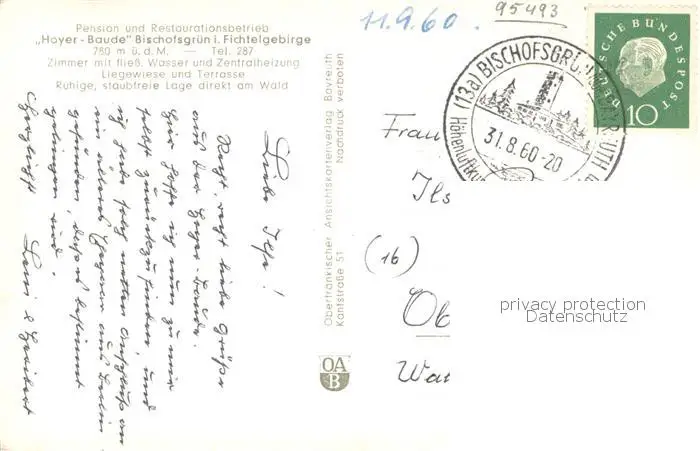 Pension und Restaurationsbetrieb
„Hoyer-Baude" Bischofsgrün i. Fichtelgebirge
780 m ü. d. M. — Tel. 287
Zimmer mit fließ. Wasser und Zentralheizung
Liegewiese und Terrasse
Ruhige, staubfreie Lage direkt am Wald
11.9.60.
95493
DEUTSCHE BUNDESPOST
10
(13a) BISCHOFSGRÜN
31.8.60-20
Höhenluftku
Liebe Ilse!
Recht, recht liebe Grüße
aus der Hoyer-Baude.
Hier hoffe ich nun zu mir
selbst zurückzufinden, und
ich habe sehr netten Anschluß an
ein älteres Ehepaar aus Berlin
gefunden, daß es bestimmt
gelingen wird.
Herzlichst
Oberfränkischer Ansichtskartenverlag Bayreuth
Kantstraße 51 Nachdruck verboten
OA
B
Frau
Ils
(16)
Ob
privacy protection
Datenschutz